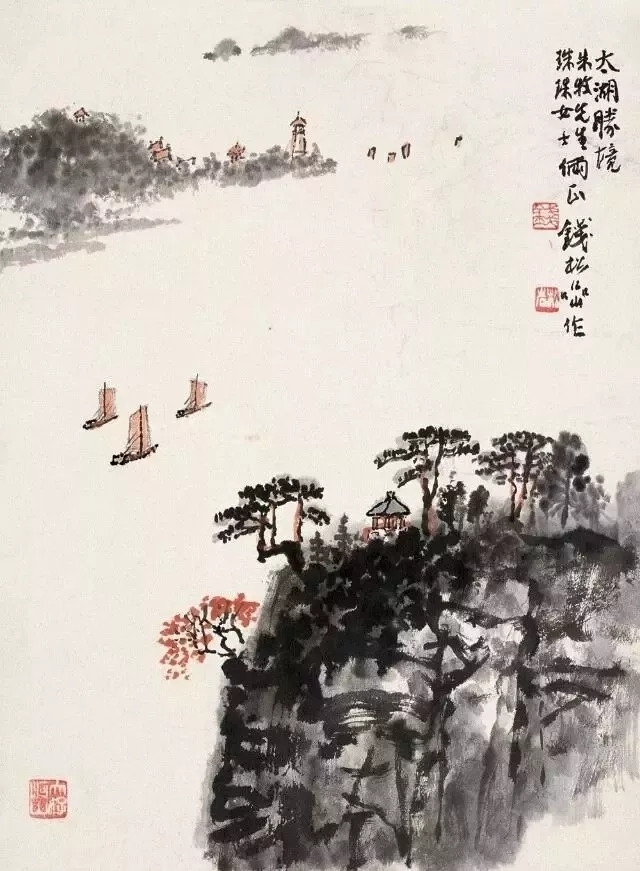 太湖勝境
朱牧先生
珠珠女士俪正 錢松喦作